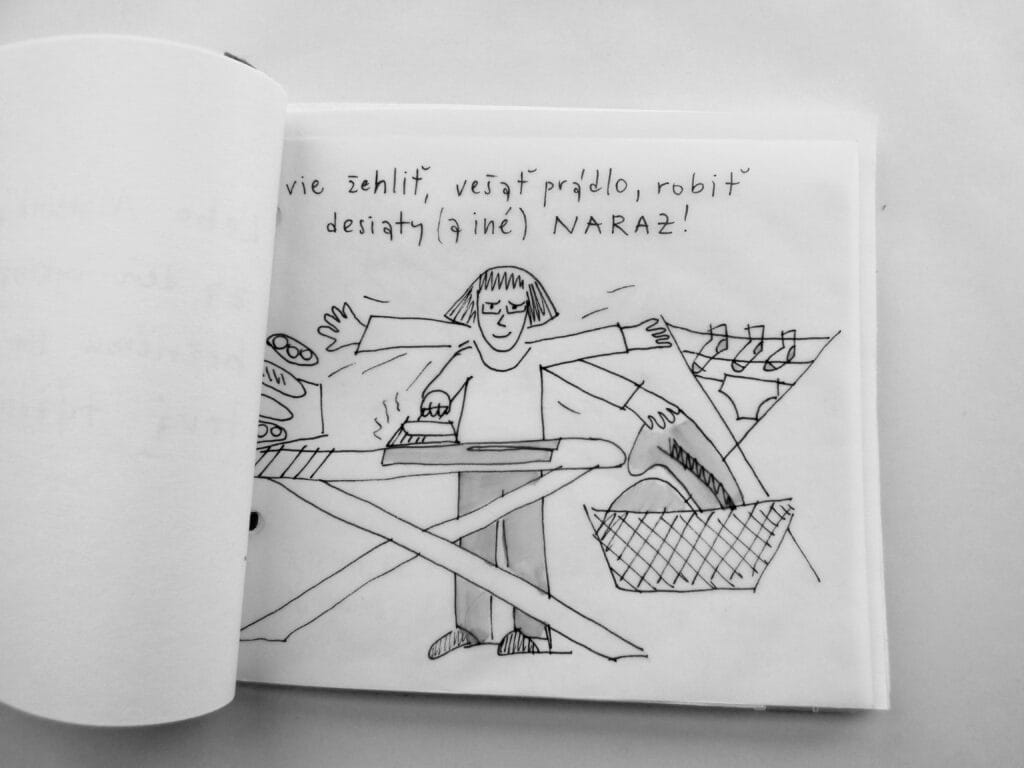 vie žehliť, vešať prádlo, robiť
desiaty (a iné) NARAZ!